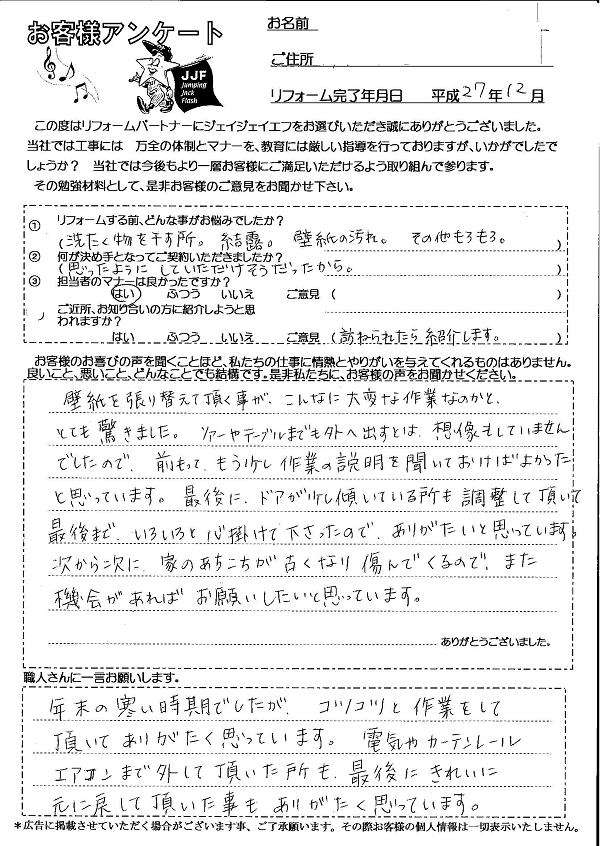 お客様アンケート
JJF
Jumping
Jack
Flash
お名前
ご住所
リフォーム完了年月日　平成27年12月
この度はリフォームパートナーにジェイジェイエフをお選びいただき誠にありがとうございました。
当社では工事には　万全の体制とマナーを、教育には厳しい指導を行っておりますが、いかがでした
でしょうか？　当社では今後もより一層お客様にご満足いただけるよう取り組んで参ります。
その勉強材料として、是非お客様のご意見をお聞かせ下さい。
① リフォームする前、どんな事がお悩みでしたか？
(洗たく物を干す所。結露。壁紙の汚れ。その他もろもろ。)
② 何が決め手となってご契約いただきましたか？
(思ったように していただけそうだったから。)
③ 担当者のマナーは良かったですか？
はい　ふつう　いいえ　ご意見 (　)
ご近所、お知り合いの方に紹介しようと思
われますか？
はい　ふつう　いいえ　ご意見 (訪ねられたら紹介します。)
お客様のお喜びの声を聞くことほど、私たちの仕事に情熱とやりがいを与えてくれるものはありません。
良いこと、悪いこと、どんなことでも結構です。是非私たちに、お客様の声をお聞かせください。
壁紙を張り替えて頂く事が、こんなに大変な作業なのかと、
とても驚きました。ソファーやテーブルまでも外へ出すとは、想像もしていません
でしたので、前もって、もう少し作業の説明を聞いておけばよかった
と思っています。最後に、ドアが少し傾いている所も調整して頂いて
最後まで、いろいろと心掛けて下さったので、ありがたいと思っています。
次から次に、家のあちこちが古くなり傷んでくるので、また
機会があればお願いしたいと思っています。
ありがとうございました。
職人さんに一言お願いします。
年末の寒い時期でしたが、コツコツと作業をして
頂いてありがたく思っています。電気やカーテンレール
エアコンまで外して頂いた所も、最後にきれいに
元に戻して頂いた事もありがたく思っています。
＊広告に掲載させていただく場合がございます事、ご了承願います。その際お客様の個人情報は一切表示いたしません。